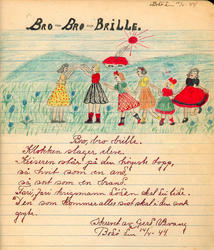 Bodø 14/4-44
BRO-BRO-BRILLE.
Bro, bro, brille.
Klokken slager eleve.
Keiseren står på sin høigste topp,
så hvit som en and,
så sort som en brand.
Fari, fari krigsmann
Den som kommer alles sist skal i den sorte
gryte.
Skrevet av Gerd
Bodø den 14/4-44